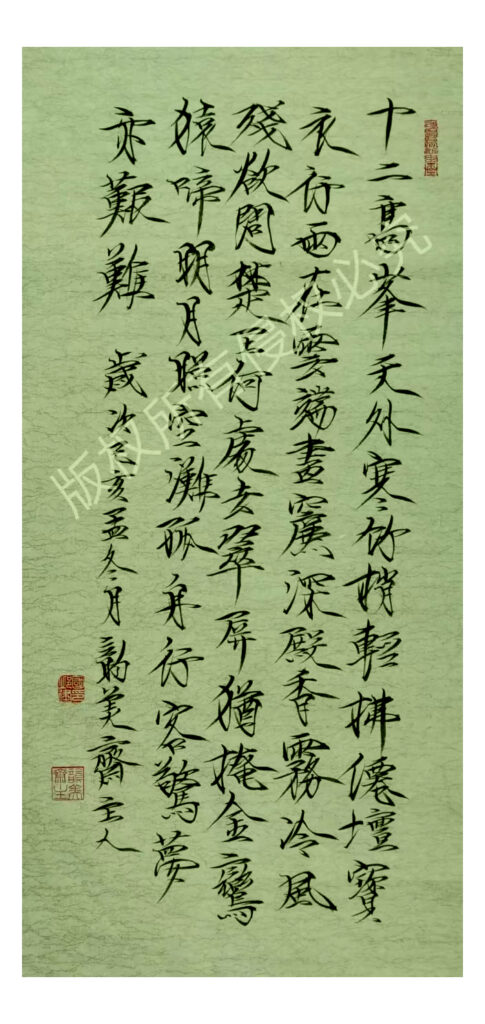 十二高峯天外寒竹梢輕拂僊壇寶
衣行雨在雲端畫簾深殿香霧冷風
殘欲問楚王何處去翠屏猶掩金鸞
猿啼明月照空灘孤舟行客驚夢
亦艱難 歲次己亥孟冬月韵美齋主人
版权所有侵权必究